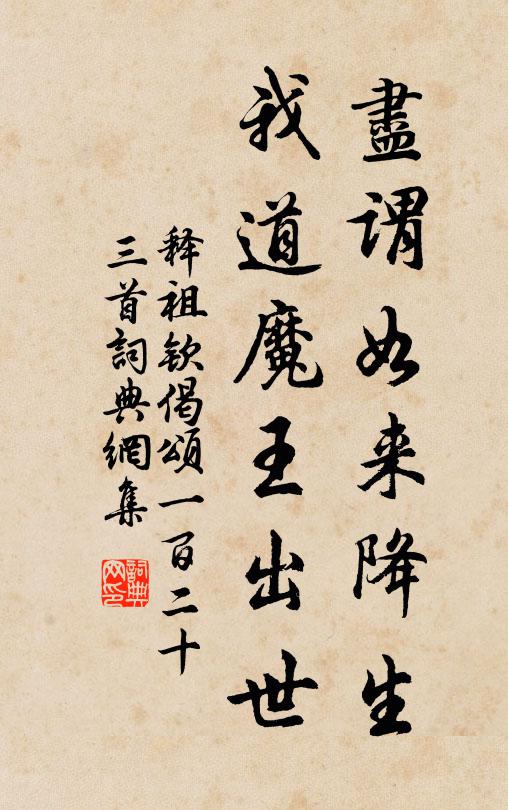 盡謂如来降生
我道魔王出世
释祖欽偈頌一百二十
三首詞典網集
詞典
网印